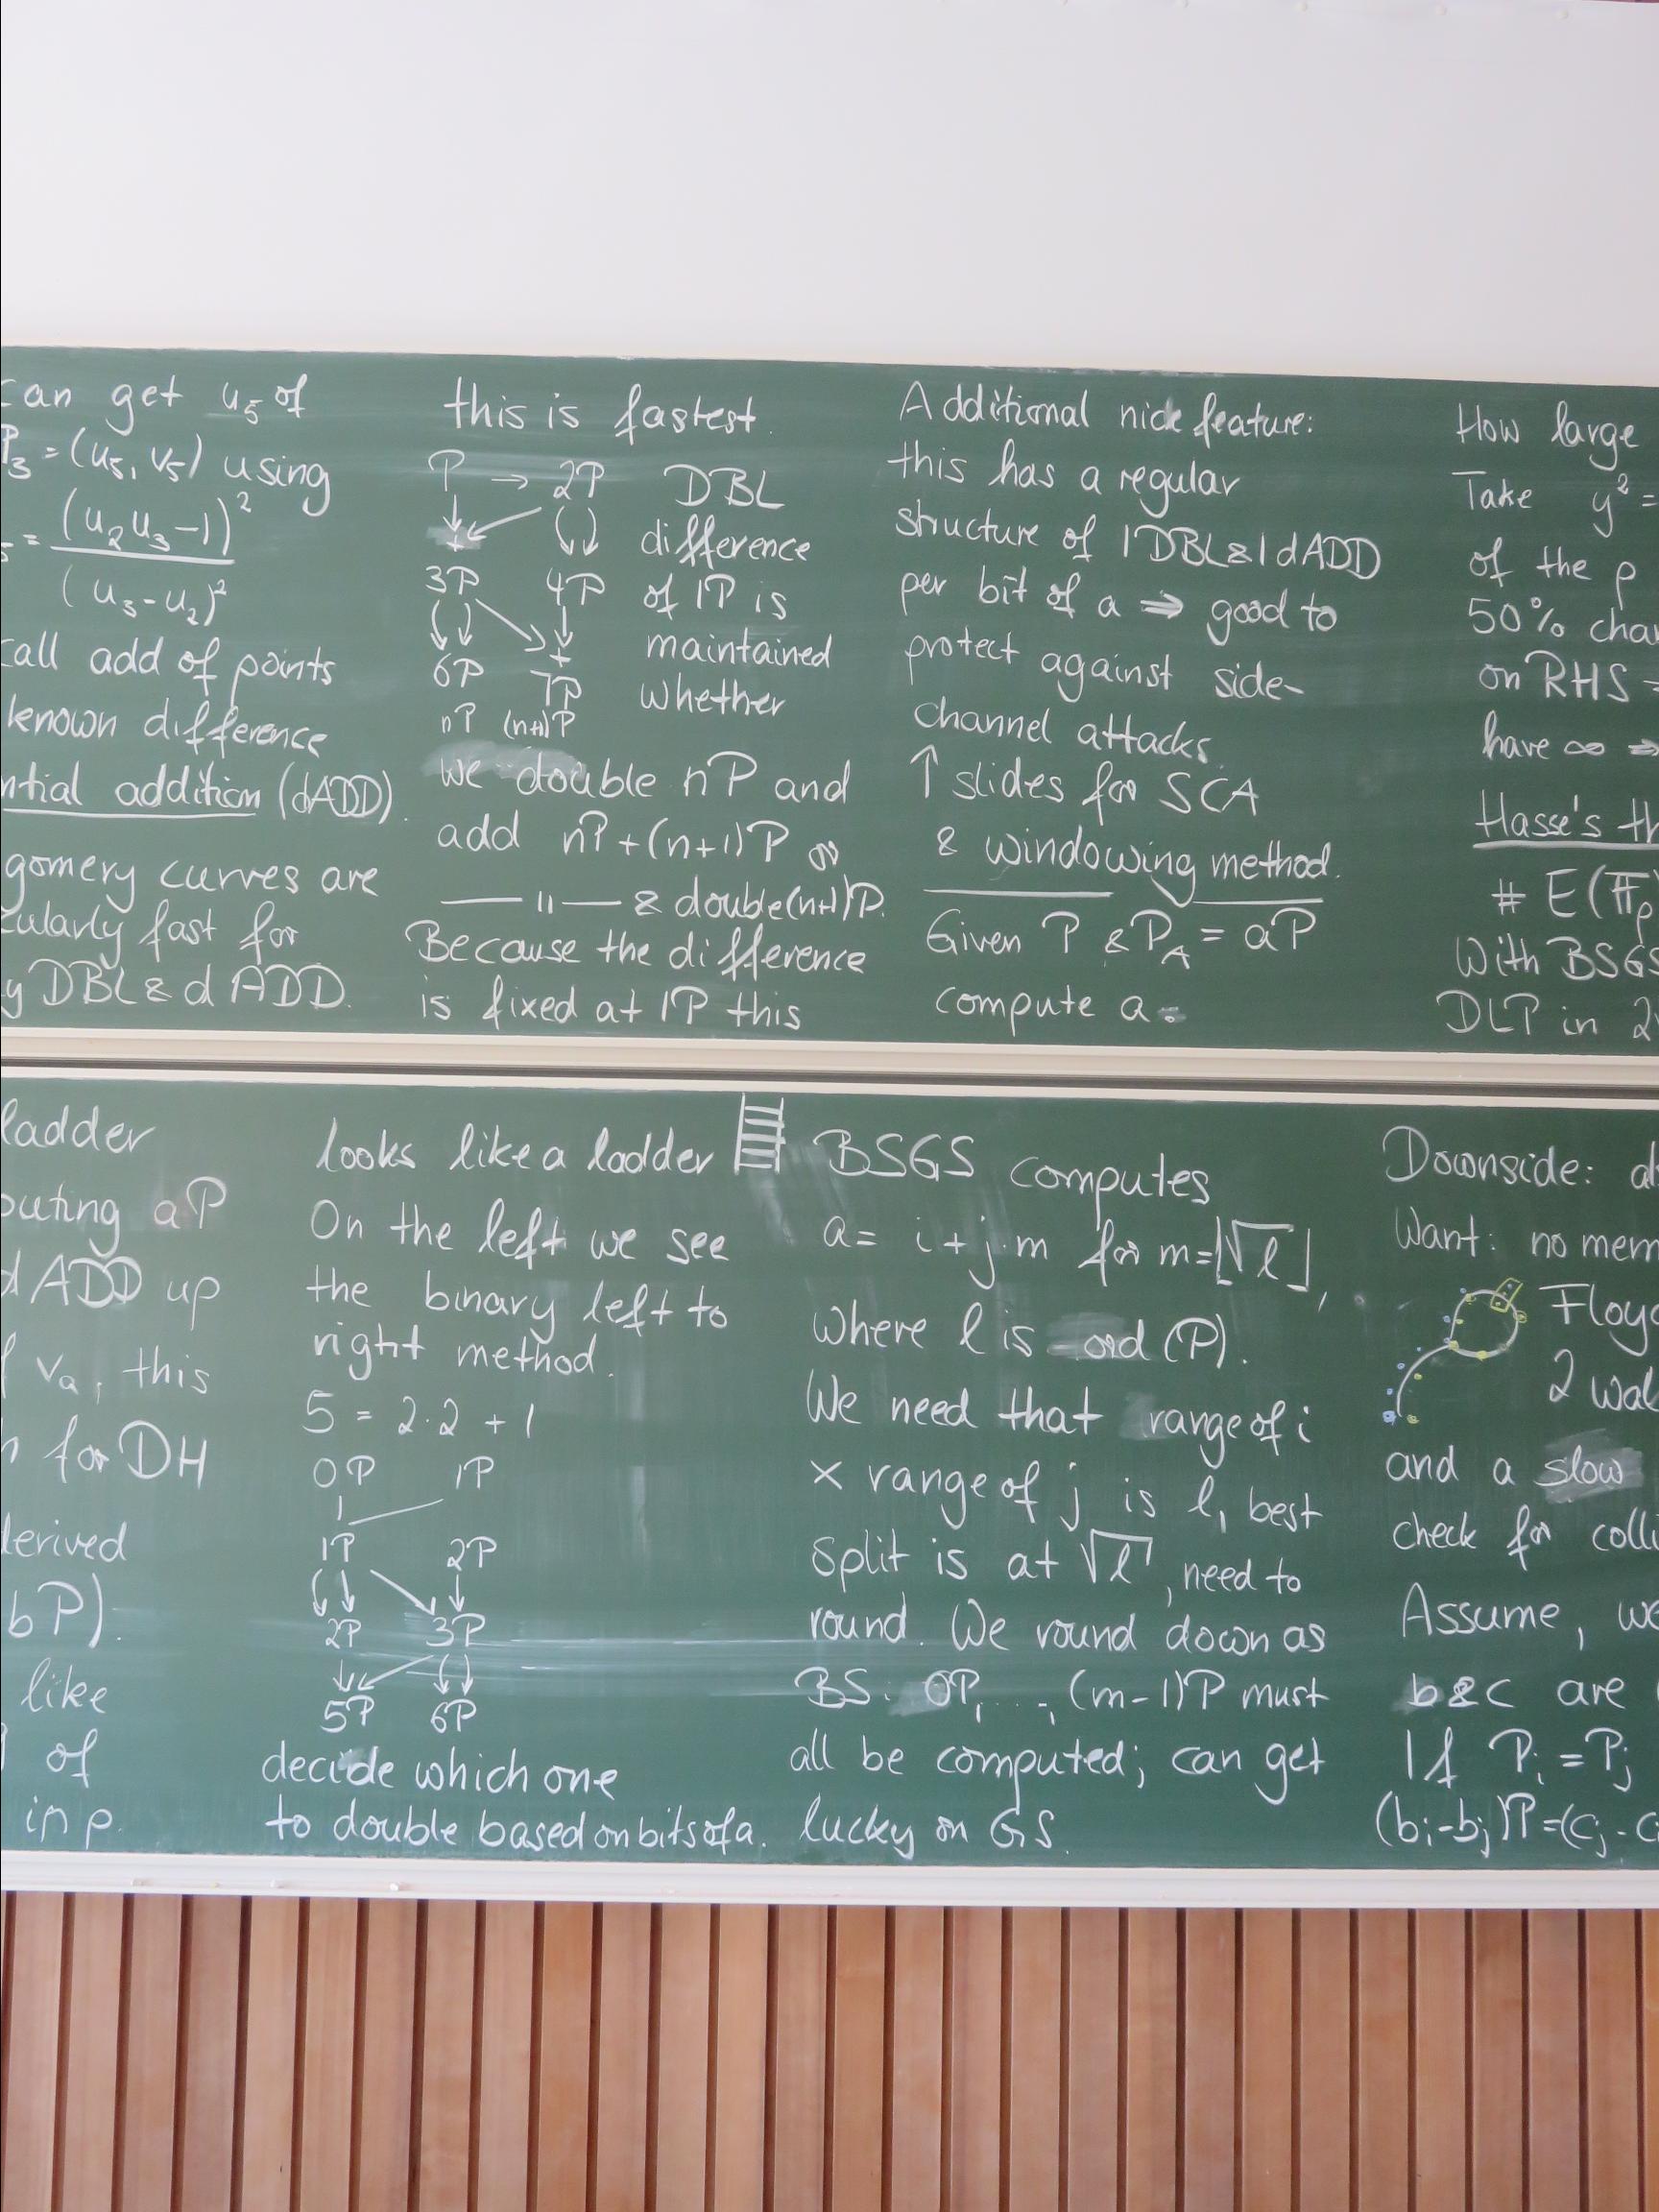 can get u₅ of
P₃ = (u₅, v₅) using
= (u₂u₃-1)²
(u₃-u₂)²
call add of points
known difference
ntial addition (dADD).
gomery curves are
cularly fast for
y DBL & d ADD.
this is fastest.
P → 2P DBL
+ difference
3P 4P of 1P is
+ maintained
6P 7P whether
nP (n+1)P
we double nP and
add nP+(n+1)P or
— " — & double(n+1)P.
Because the difference
is fixed at 1P this
Additional nice feature:
this has a regular
structure of 1DBL&1dADD
per bit of a ⇒ good to
protect against side-
channel attacks.
↑ slides for SCA
& windowing method.
Given P & P_A = aP
compute a.
How large
Take y² =
of the p
50% chan
on RHS =
have ∞ ⇒
Hasse's th
# E(F_p)
With BSGS
DLP in 2
ladder
puting aP
dADD up
v_a, this
for DH
derived
bP).
like
of
in p.
looks like a ladder
On the left we see
the binary left to
right method.
5 = 2·2 + 1
0P 1P
1P 2P
2P 3P
5P 6P
decide which one
to double based on bits of a.
BSGS computes
a = i + j·m for m=⌊√l⌋,
where l is ord (P).
We need that range of i
× range of j is l, best
split is at √l, need to
round. We round down as
BS: 0P, ..., (m-1)P must
all be computed; can get
lucky on GS.
Downside: al
Want: no mem
Floyd
2 wal
and a slow
check for colli
Assume, we
b&c are
If P_i = P_j
(b_i-b_j)P=(c_j-c